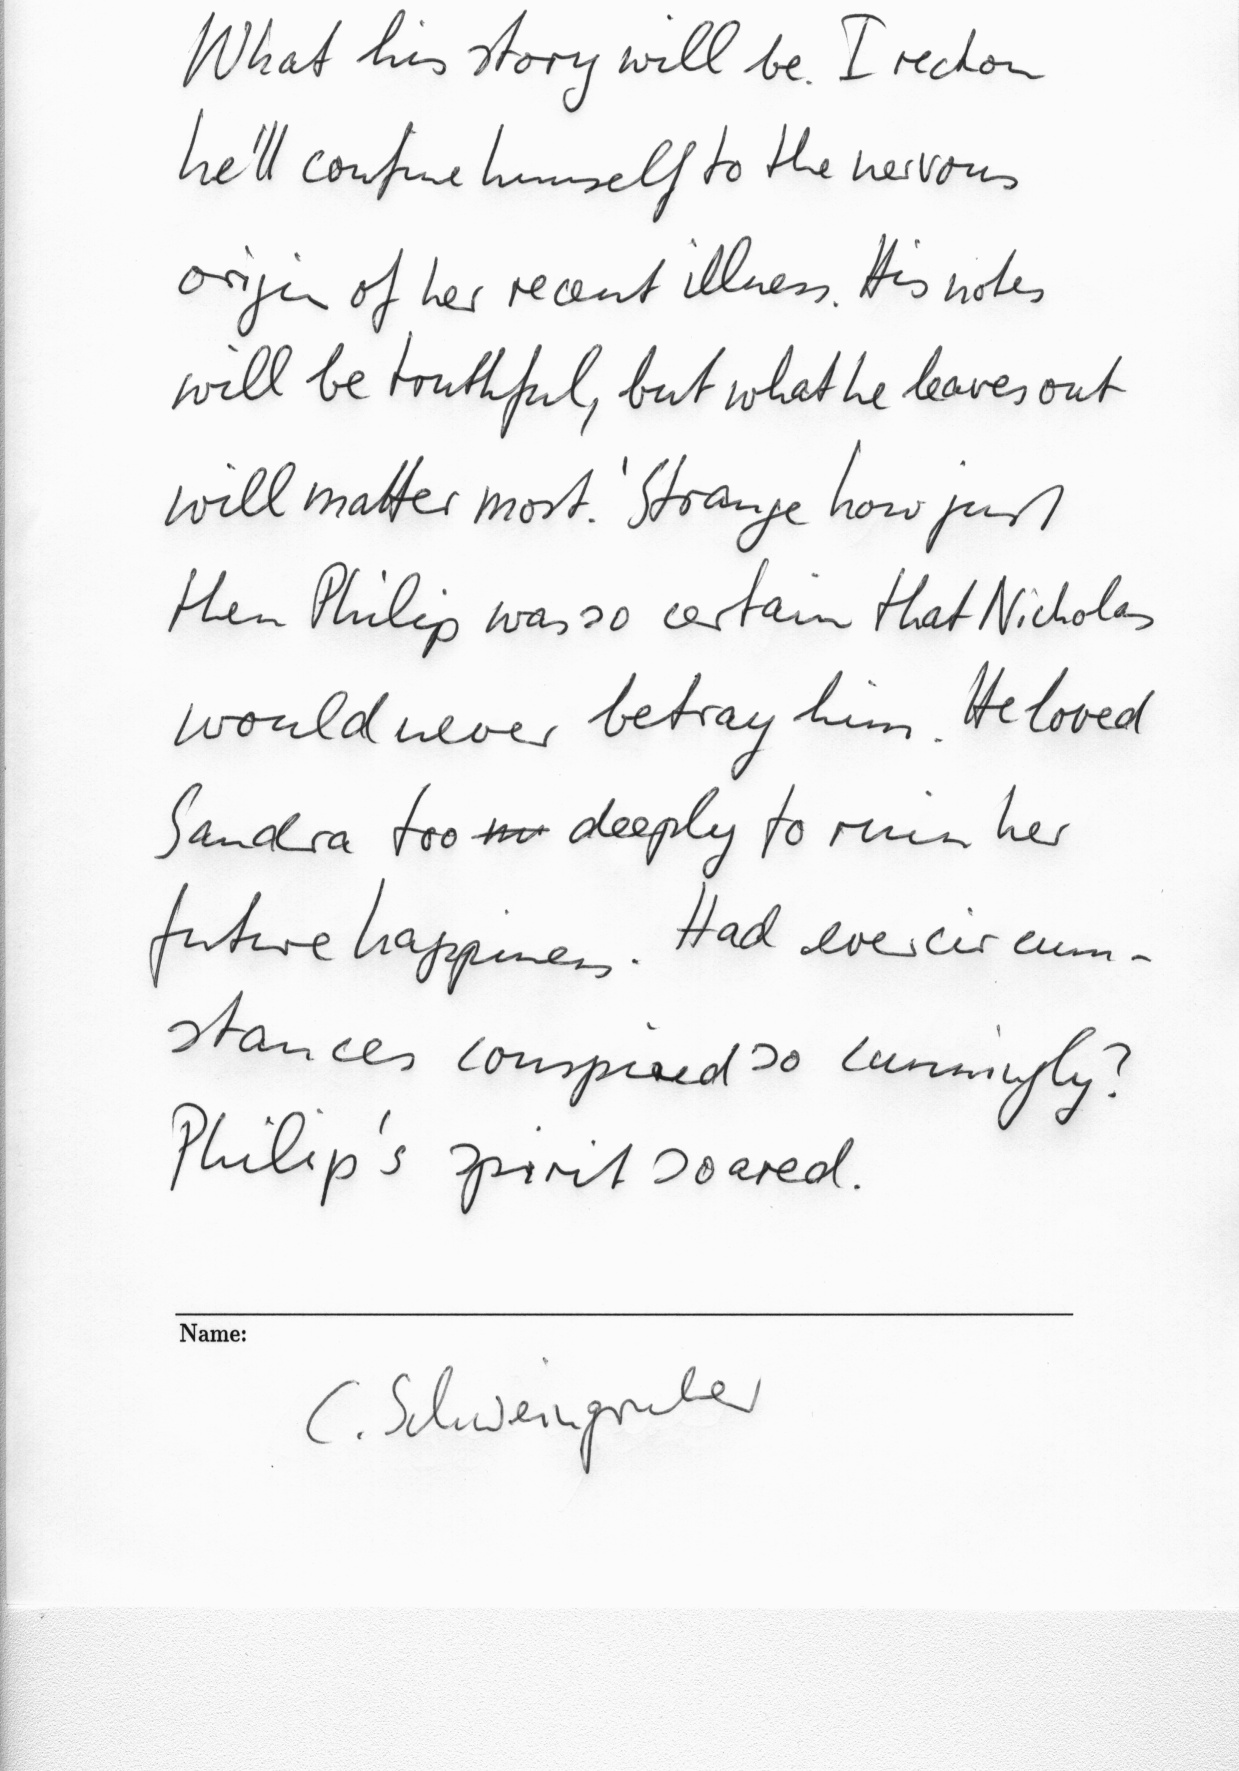 What his story will be. I reckon
he'll confine himself to the nervous
origin of her recent illness. His notes
will be truthful, but what he leaves out
will matter most.' Strange how just
then Philip was so certain that Nicholas
would never betray him. He loved
Sandra too deeply to ruin her
future happiness. Had ever circum-
stances conspired so cunningly?
Philip's spirit soared.
Name:
C. Schweingruber